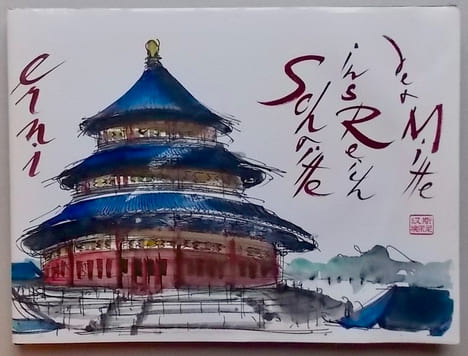 erni
Schritte
ins Reich
der Mitte